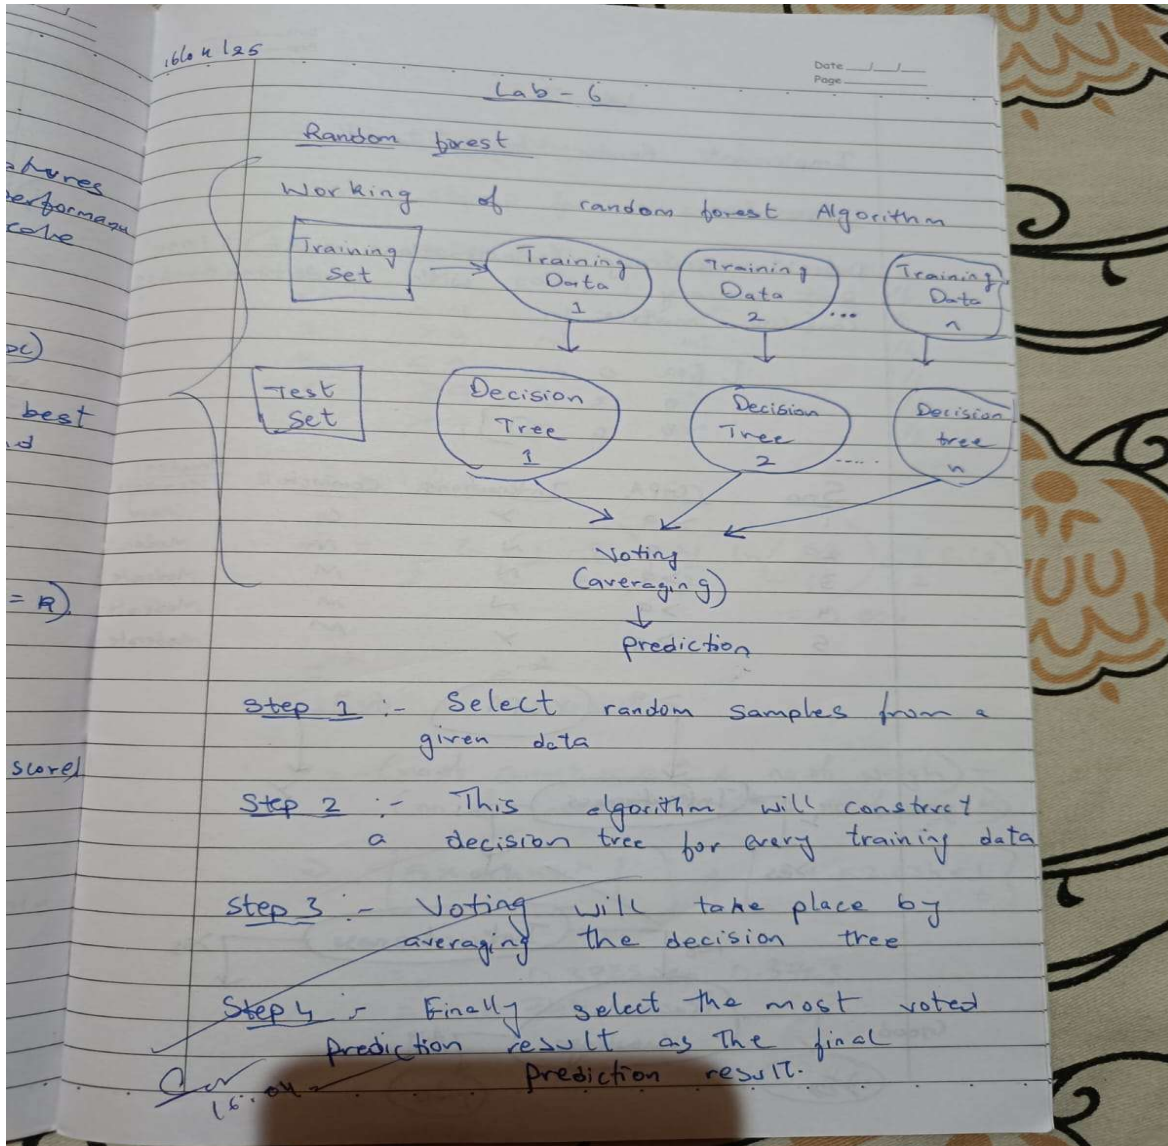 16/04/25
Date __/__/__
Page ______
Lab - 6
Random forest
Working of random forest Algorithm
Training Set
Training Data 1
Training Data 2
...
Training Data n
Test Set
Decision Tree 1
Decision Tree 2
.....
Decision tree n
Voting
(averaging)
prediction
Step 1 :- Select random samples from a
given data
Step 2 :- This algorithm will construct
a decision tree for every training data
Step 3 :- Voting will take place by
averaging the decision tree
Step 4 :- Finally select the most voted
prediction result as the final
prediction result.
16.04
best
= R)
score)